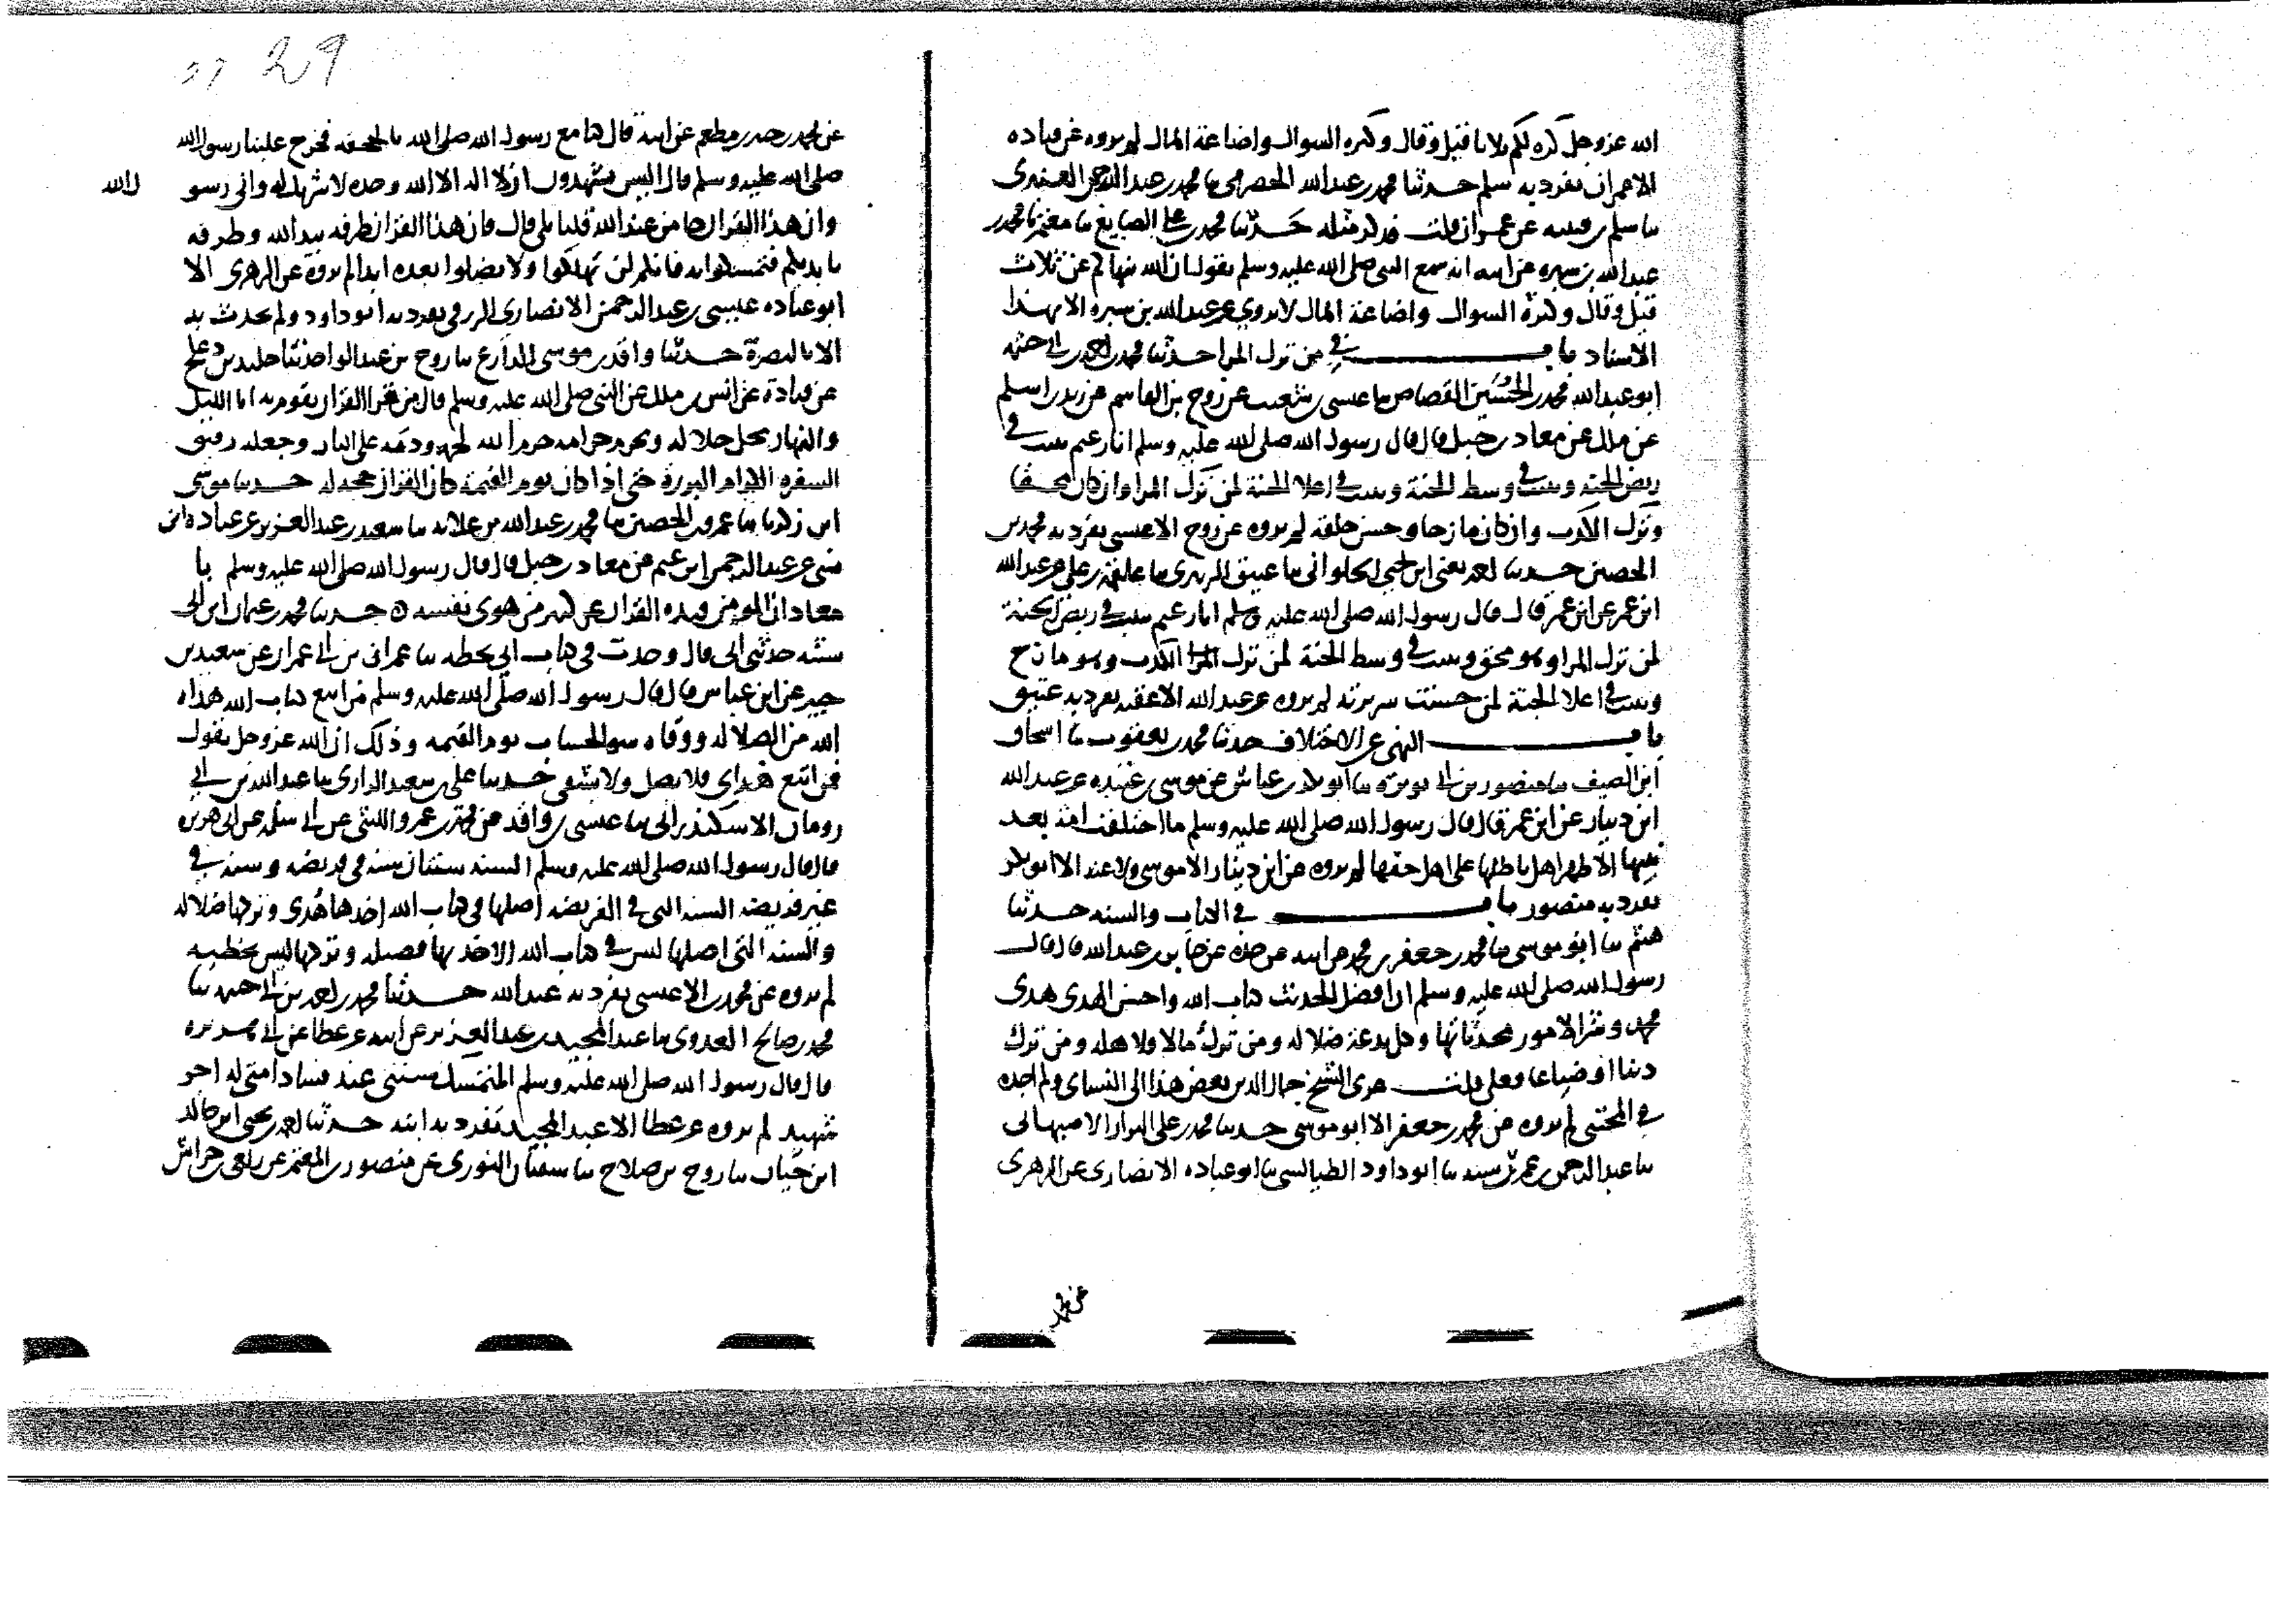 الله عز وجل كره لكم ثلاثا قيل وقال وكثره السوال واضاعة المال لم يروه عن قتاده
الا عمران تفرد به سلم حدثنا محمد بن عبدالله الحضرمي ثنا محمد بن عبدالرحمن العنبري
ثنا سلم بن قتيبه عن عمران قلت فذكر مثله حدثنا محمد بن علي الصايغ ثنا معمر ثنا محمد بن
عبدالله بن سبره عن ابيه انه سمع النبي صلى الله عليه وسلم يقول ان الله ينهاكم عن ثلاث
قيل وقال وكثرة السوال واضاعة المال لا يروى عن عبدالله بن سبره الا بهذا
الاسناد باب في من ترك المرا حدثنا محمد بن احمد بن ابي خيثمه
ابو عبدالله محمد بن الحسين القصاص ثنا عيسى بن شعيب عن روح بن القاسم عن زيد بن اسلم
عن ملك عن معاذ بن جبل قال قال رسول الله صلى الله عليه وسلم انا زعيم ببيت في
ربض الجنه وببيت في وسط الجنة وببيت في اعلا الجنة لمن ترك المرا وان كان محقا
وترك الكذب وان كان مازحا وحسن خلقه لم يروه عن روح الا عيسى تفرد به محمد بن
الحصين حدثنا احمد يعني ابن يحيى الحلواني ثنا عتيق الزبيري ثنا عقبة بن علي عن عبدالله
ابن عمر عن ابن عمر قال قال رسول الله صلى الله عليه وسلم انا زعيم ببيت في ربض الجنة
لمن ترك المرا وهو محق وببيت في وسط الجنة لمن ترك الكذب وهو مازح
وببيت في اعلا الجنة لمن حسنت سريرته لم يروه عن عبدالله الا عقبه تفرد به عتيق
باب النهي عن الاختلاف حدثنا محمد بن يعقوب ثنا اسحاق
ابن الصيف ثنا منصور بن ابي نويره ثنا ابو بكر بن عياش عن موسى بن عبيده عن عبدالله
ابن دينار عن ابن عمر قال قال رسول الله صلى الله عليه وسلم ما اختلفت امة بعد
نبيها الا ظهر اهل باطلها على اهل حقها لم يروه عن ابن دينار الا موسى ولا عنه الا ابو بكر
تفرد به منصور باب في الكتاب والسنه حدثنا
هيثم ثنا ابو موسى ثنا محمد بن جعفر بن محمد عن ابيه عن جده عن جابر بن عبدالله قال قال
رسول الله صلى الله عليه وسلم ان افضل الحديث كتاب الله واحسن الهدى هدى
محمد وشر الامور محدثاتها وكل بدعة ضلاله ومن ترك مالا فلاهله ومن ترك
دينا او ضياعا فعلي قلت عزى الشيخ جمال الدين بعض هذا الى النساي ولم اجده
في المجتبى لم يروه عن محمد بن جعفر الا ابو موسى حدثنا محمد بن علي البزار الاصبهاني
ثنا عبدالرحمن بن عمر رسته ثنا ابو داود الطيالسي ثنا ابو عباده الانصاري عن الزهري
عن محمد
29
عن محمد بن جبير بن مطعم عن ابيه قال كنا مع رسول الله صلى الله بالجحفه فخرج علينا رسول الله
صلى الله عليه وسلم قال اليس تشهدون ان لا اله الا الله وحده لا شريك له واني رسو
ل الله
وان هذا القران جا من عند الله قلنا بلى قال فان هذا القران طرفه بيد الله وطرفه
بايديكم فتمسكوا به فانكم لن تهلكوا ولا تضلوا بعده ابدا لم يروه عن الزهري الا
ابو عباده عيسى بن عبدالرحمن الانصاري الزرقي تفرد به ابو داود ولم يحدث به
الا بالبصرة حدثنا واقد بن موسى الدارع ثنا روح بن عبدالواحد ثنا خليد بن دعلج
عن قتادة عن انس بن ملك عن النبي صلى الله عليه وسلم قال من قرا القران يقوم به انا الليل
والنهار يحل حلاله ويحرم حرامه حرم الله لحمه ودمه على النار وجعله رفيق
السفره الكرام البررة حتى اذا كان يوم القيمة كان القران حجه له حدثنا موسى
ابن زكريا ثنا عمرو بن الحصين ثنا محمد بن عبدالله بن علاثه ثنا سعيد بن عبدالعزيز عن عباده ابن
نسي عن عبدالرحمن ابن غنم عن معاذ بن جبل قال قال رسول الله صلى الله عليه وسلم يا
معاذ ان المومن قيده القران عن كثير من هوى نفسه حدثنا محمد بن عثمان ابن ابي
شيبه حدثني ابي قال وجدت في كتاب ابي بخطه ثنا عمران بن ابي عمران عن سعيد بن
جبير عن ابن عباس قال قال رسول الله صلى الله عليه وسلم من اتبع كتاب الله هداه
الله من الضلاله ووقاه سو الحساب يوم القيمه وذلك ان الله عز وجل يقول
فمن اتبع هداي فلا يضل ولا يشقى حدثنا علي بن سعيد الرازي ثنا عبدالله بن ابي
رومان الاسكندراني ثنا عيسى بن واقد عن محمد بن عمرو الليثي عن ابي سلمه عن ابي هريره
قال قال رسول الله صلى الله عليه وسلم السنه سنتان سنه في فريضه وسنه في
غير فريضه السنه التي في الفريضه اصلها في كتاب الله اخذها هدى وتركها ضلاله
والسنه التي اصلها ليس في كتاب الله الاخذ بها فضيله وتركها ليس بخطيه
لم يروه عن محمد الا عيسى تفرد به عبدالله حدثنا محمد بن احمد بن ابي خيثمه ثنا
محمد بن صالح العدوي ثنا عبدالمجيد بن عبدالعزيز عن ابيه عن عطا عن ابي هريره
قال قال رسول الله صلى الله عليه وسلم المتمسك بسنتي عند فساد امتي له اجر
شهيد لم يروه عن عطا الا عبدالعزيز تفرد به ابنه حدثنا احمد بن يحيى ابن خالد
ابن حيان ثنا روح بن صلاح ثنا سفيان الثوري عن منصور بن المعتمر عن ربعي بن حراش